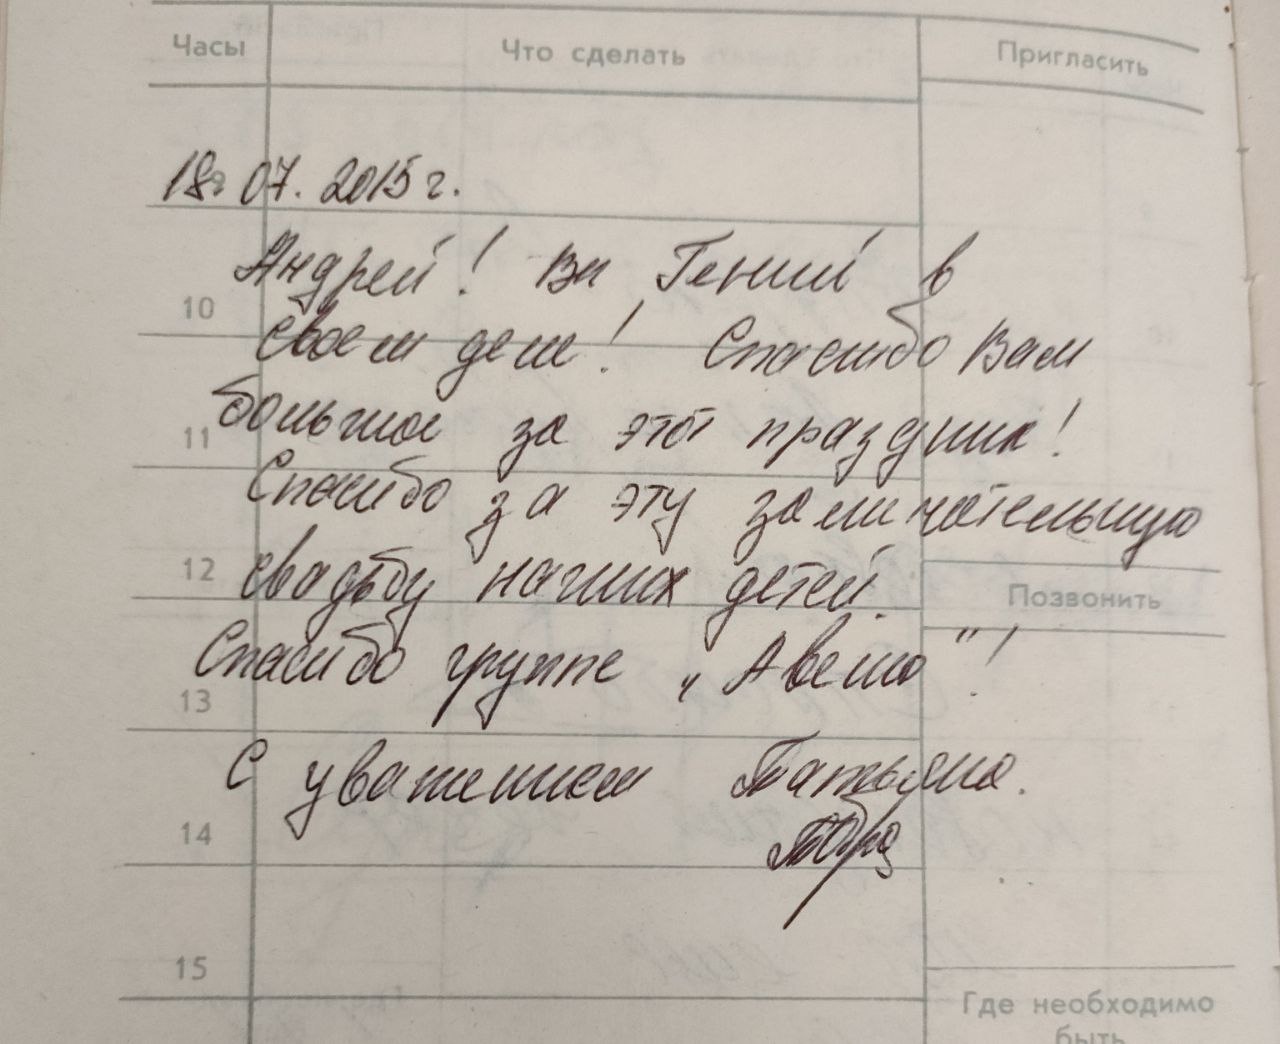 Часы Что сделать Пригласить
18. 07. 2015 г.
Андрей! Вы Гений в
10
своем деле! Спасибо Вам
11 большое за этот праздник!
Спасибо за эту замечательную
12 свадьбу наших детей.
Позвонить
Спасибо группе „
13
С уважением Татьяна.
14
15
Где необходимо
быть